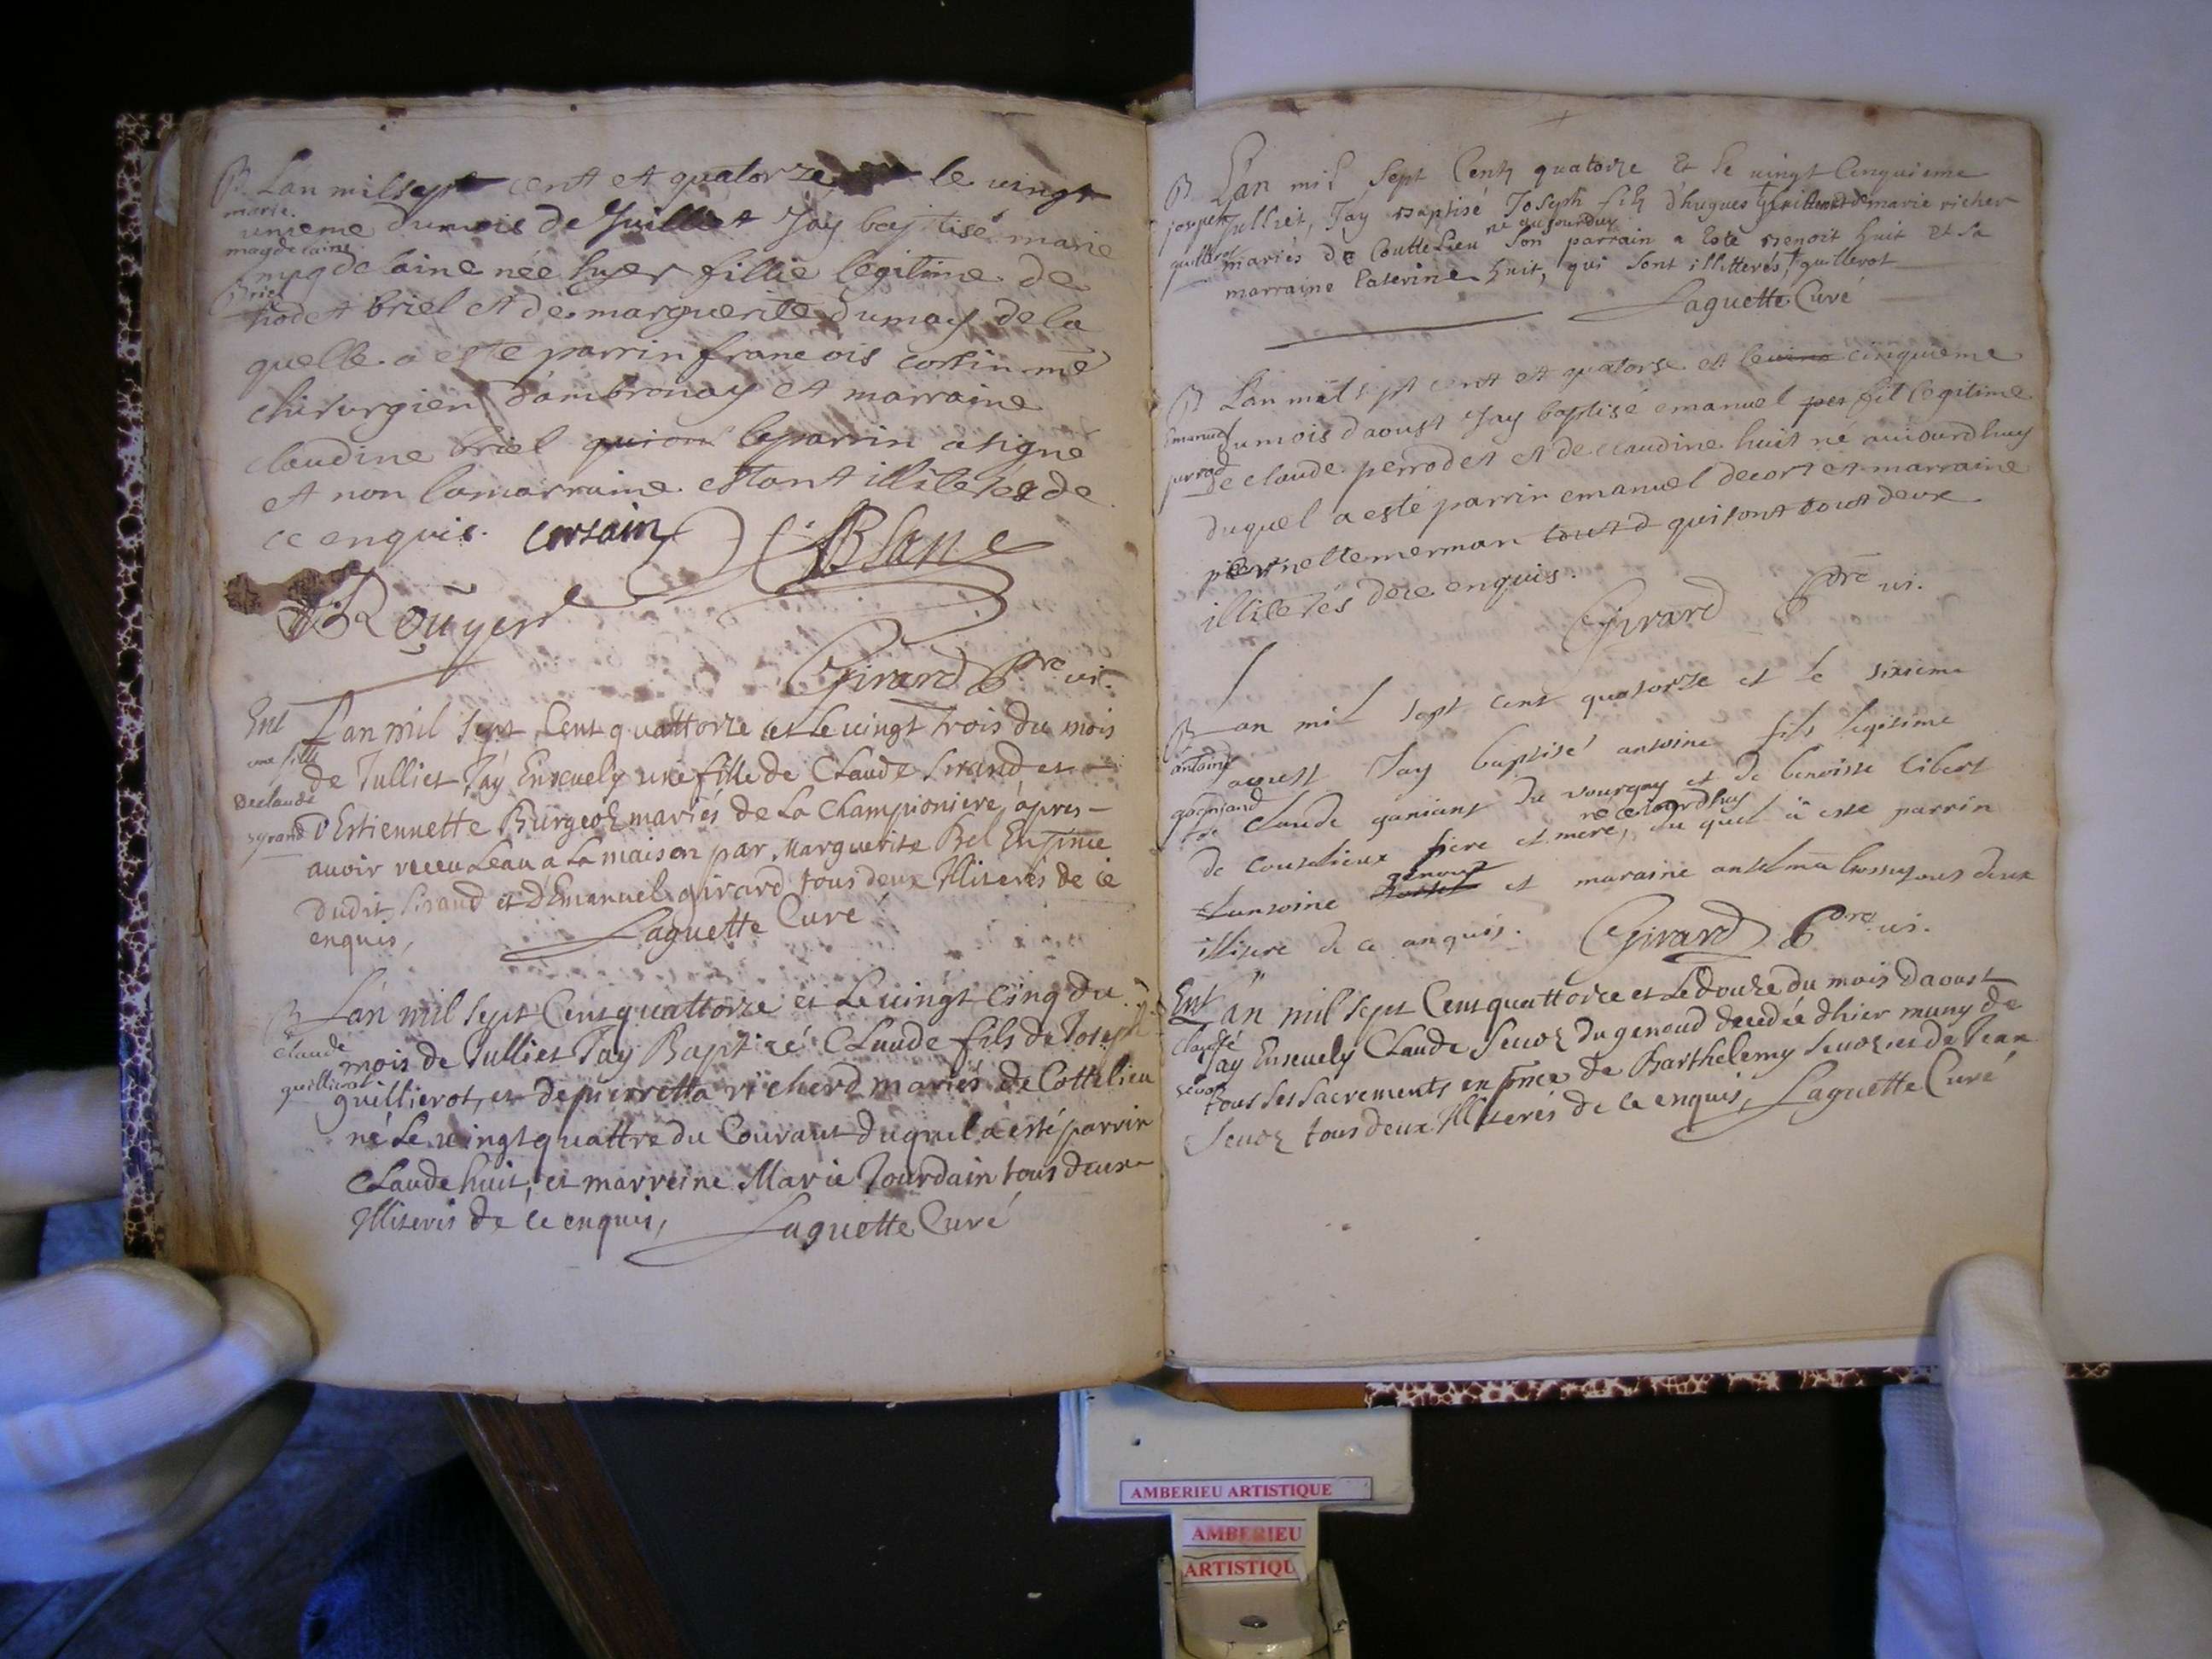 B Lan mil sept cent et quatorze le vingt
marie
unieme du mois de Juillet Jay baptisé marie
magdelaine
magdelaine née hyer fillie legitime de
Briel
briel et de marguerite dumay de la
quelle a esté parrin francois cortin me
chirurgien d'ambronay et marraine
claudine briel le parrin a signé
et non la marraine estant illiterés de
ce enquis. corsain Blanc
Rouyer
Girard pbre vi.
Ent Lan mil sept Cent quattorze et le vingt trois du mois
une fille
de Julliet Jay Ensevely une fille de Claude Sirand et
de claude
syrand d'Estiennette Burgeoz mariés de La Championiere, apres
avoir receu Leau a La maison par Marguerite Bel En
dudit Siraud et d'Emanuel girard tous deux Illiterés de ce
enquis, Laguette Curé
B Lan mil sept Cent quattorze et Le vingt cinq du
Claude
mois de Julliet Jay Baptizé Claude fils de Joseph
guillierot
guillierot, et de pierretta richerd mariés de Cottelieu
né Le vingt quattre du Courant duquel a esté parrin
Claude huit, et marreine Marie Jourdain tous deux
Illiterés de ce enquis, Laguette Curé
B L'an mil sept Centz quatorze et le vingt Cenquieme
joseph Julliet, Jay Baptisé Joseph filz d'hugues marie richer
né aujourduy
guillerot mariés de Coutte Lieu son parrain a Esté Benoit huit et sa
marraine Caterine huit, qui sont illitterés, guillerot
Laguette Curé
B Lan mil sept cent et quatorse et le cinquieme
Emanuel du mois daoust Jay baptisé emanuel fil legitime
perrod de claude perrodet et de claudine huit né auiourdhuy
duquel a esté parrin emanuel decort et marraine
pernette merman qui sont tout deux
illiterés de ce enquis.
Girard pbre vi.
B Lan mil sept cent quatorze et le sixieme
antoine
aoust Jay baptisé antoine fils legitime
de Claude ganiant du vourgay et de benoiste libert
né ceiourdhuy
de coutelieux pere et mere, du quel a este parrin
genoux
antoine et maraine tous deux
illitere de ce anquis. Girard pbre vi.
Ent L'an mil sept Cent quattorze et Le Douze du mois Daoust
Claude
Jay Ensevely Claude Sevoz du genoud decedée dhier muny de
sevoz
tous ses sacrements en pnce de Barthelemy Sevoz et de Jean
Sevoz tous deux Illiterés de ce enquis, Laguette Curé
AMBERIEU ARTISTIQUE
AMBERIEU
ARTISTIQU